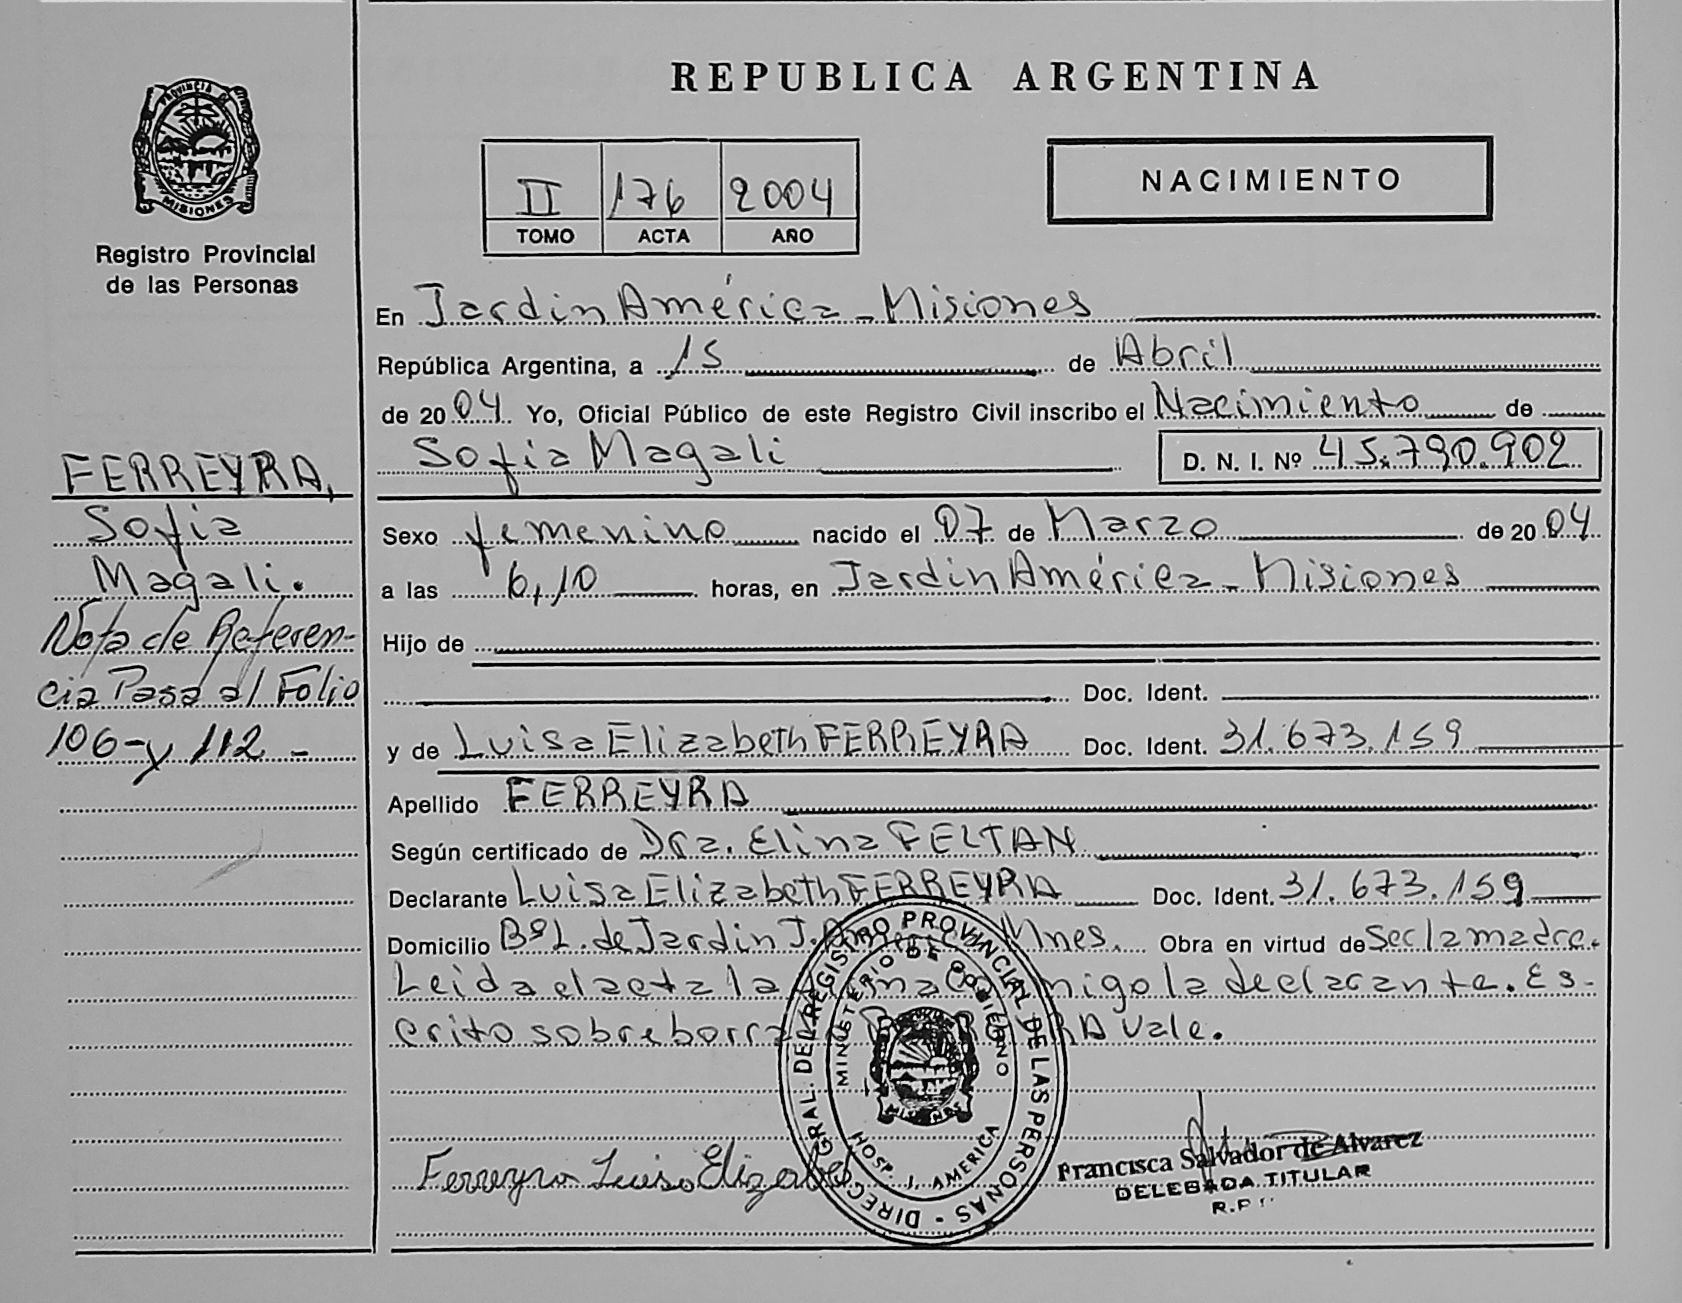 PROVINCIA DE
MISIONES
Registro Provincial
de las Personas
FERREYRA,
Sofia
Magali.
Nota de Referen-
cia Pasa al Folio
106-y 112 -
REPUBLICA ARGENTINA
II 176 2004
TOMO ACTA AÑO
NACIMIENTO
En Jardin América - Misiones
República Argentina, a 15 de Abril
de 2004 Yo, Oficial Público de este Registro Civil inscribo el Nacimiento de
Sofia Magali D. N. I. Nº 45.790.902
Sexo femenino nacido el 07 de Marzo de 2004
a las 6,10 horas, en Jardin América - Misiones
Hijo de
Doc. Ident.
y de Luisa Elizabeth FERREYRA Doc. Ident. 31.673.159
Apellido FERREYRA
Según certificado de Dra. Elina FELTAN
Declarante Luisa Elizabeth FERREYRA Doc. Ident. 31.673.159
Domicilio BºL. de Jardin J. Mnes. Obra en virtud de Sec la madre.
Leida el acta la la declarante. Es-
crito sobre Vale.
DIREC. GRAL. DEL REGISTRO PROVINCIAL DE LAS PERSONAS -
MINISTERIO DE GOBIERNO
MISIONES
HOSP. J. AMERICA
Ferreyra Luisa Elizabet
Francisca Salvador de Alvarez
DELEGADA TITULAR